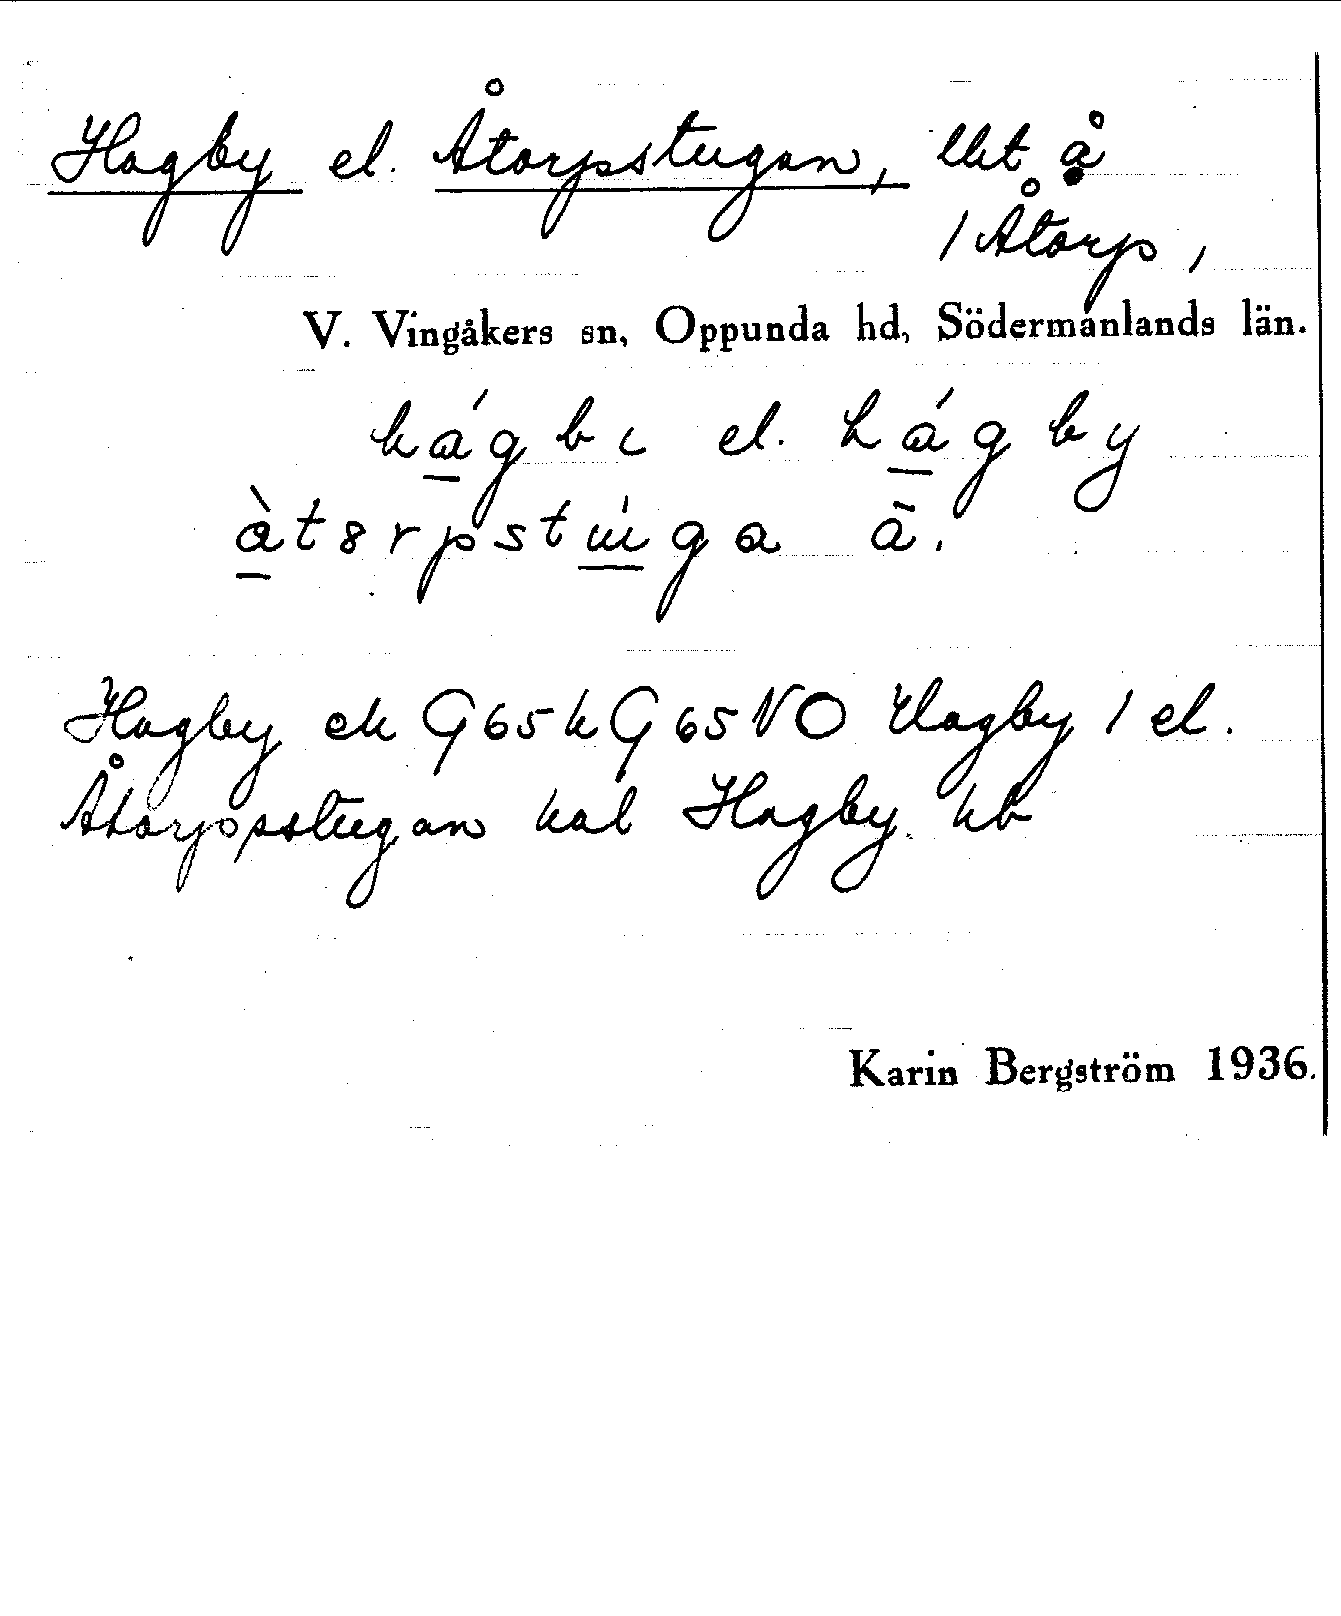 Hagby el. Åtorpsstugan, lht å
1 Åtorp,
V. Vingåkers sn, Oppunda hd, Södermanlands län.
hágbı el. hágby
àtɞrpstúga ā.
Hagby ek G65 k G65 NO Hagby 1 el.
Åtorpsstugan kal Hagby hb
Karin Bergström 1936.